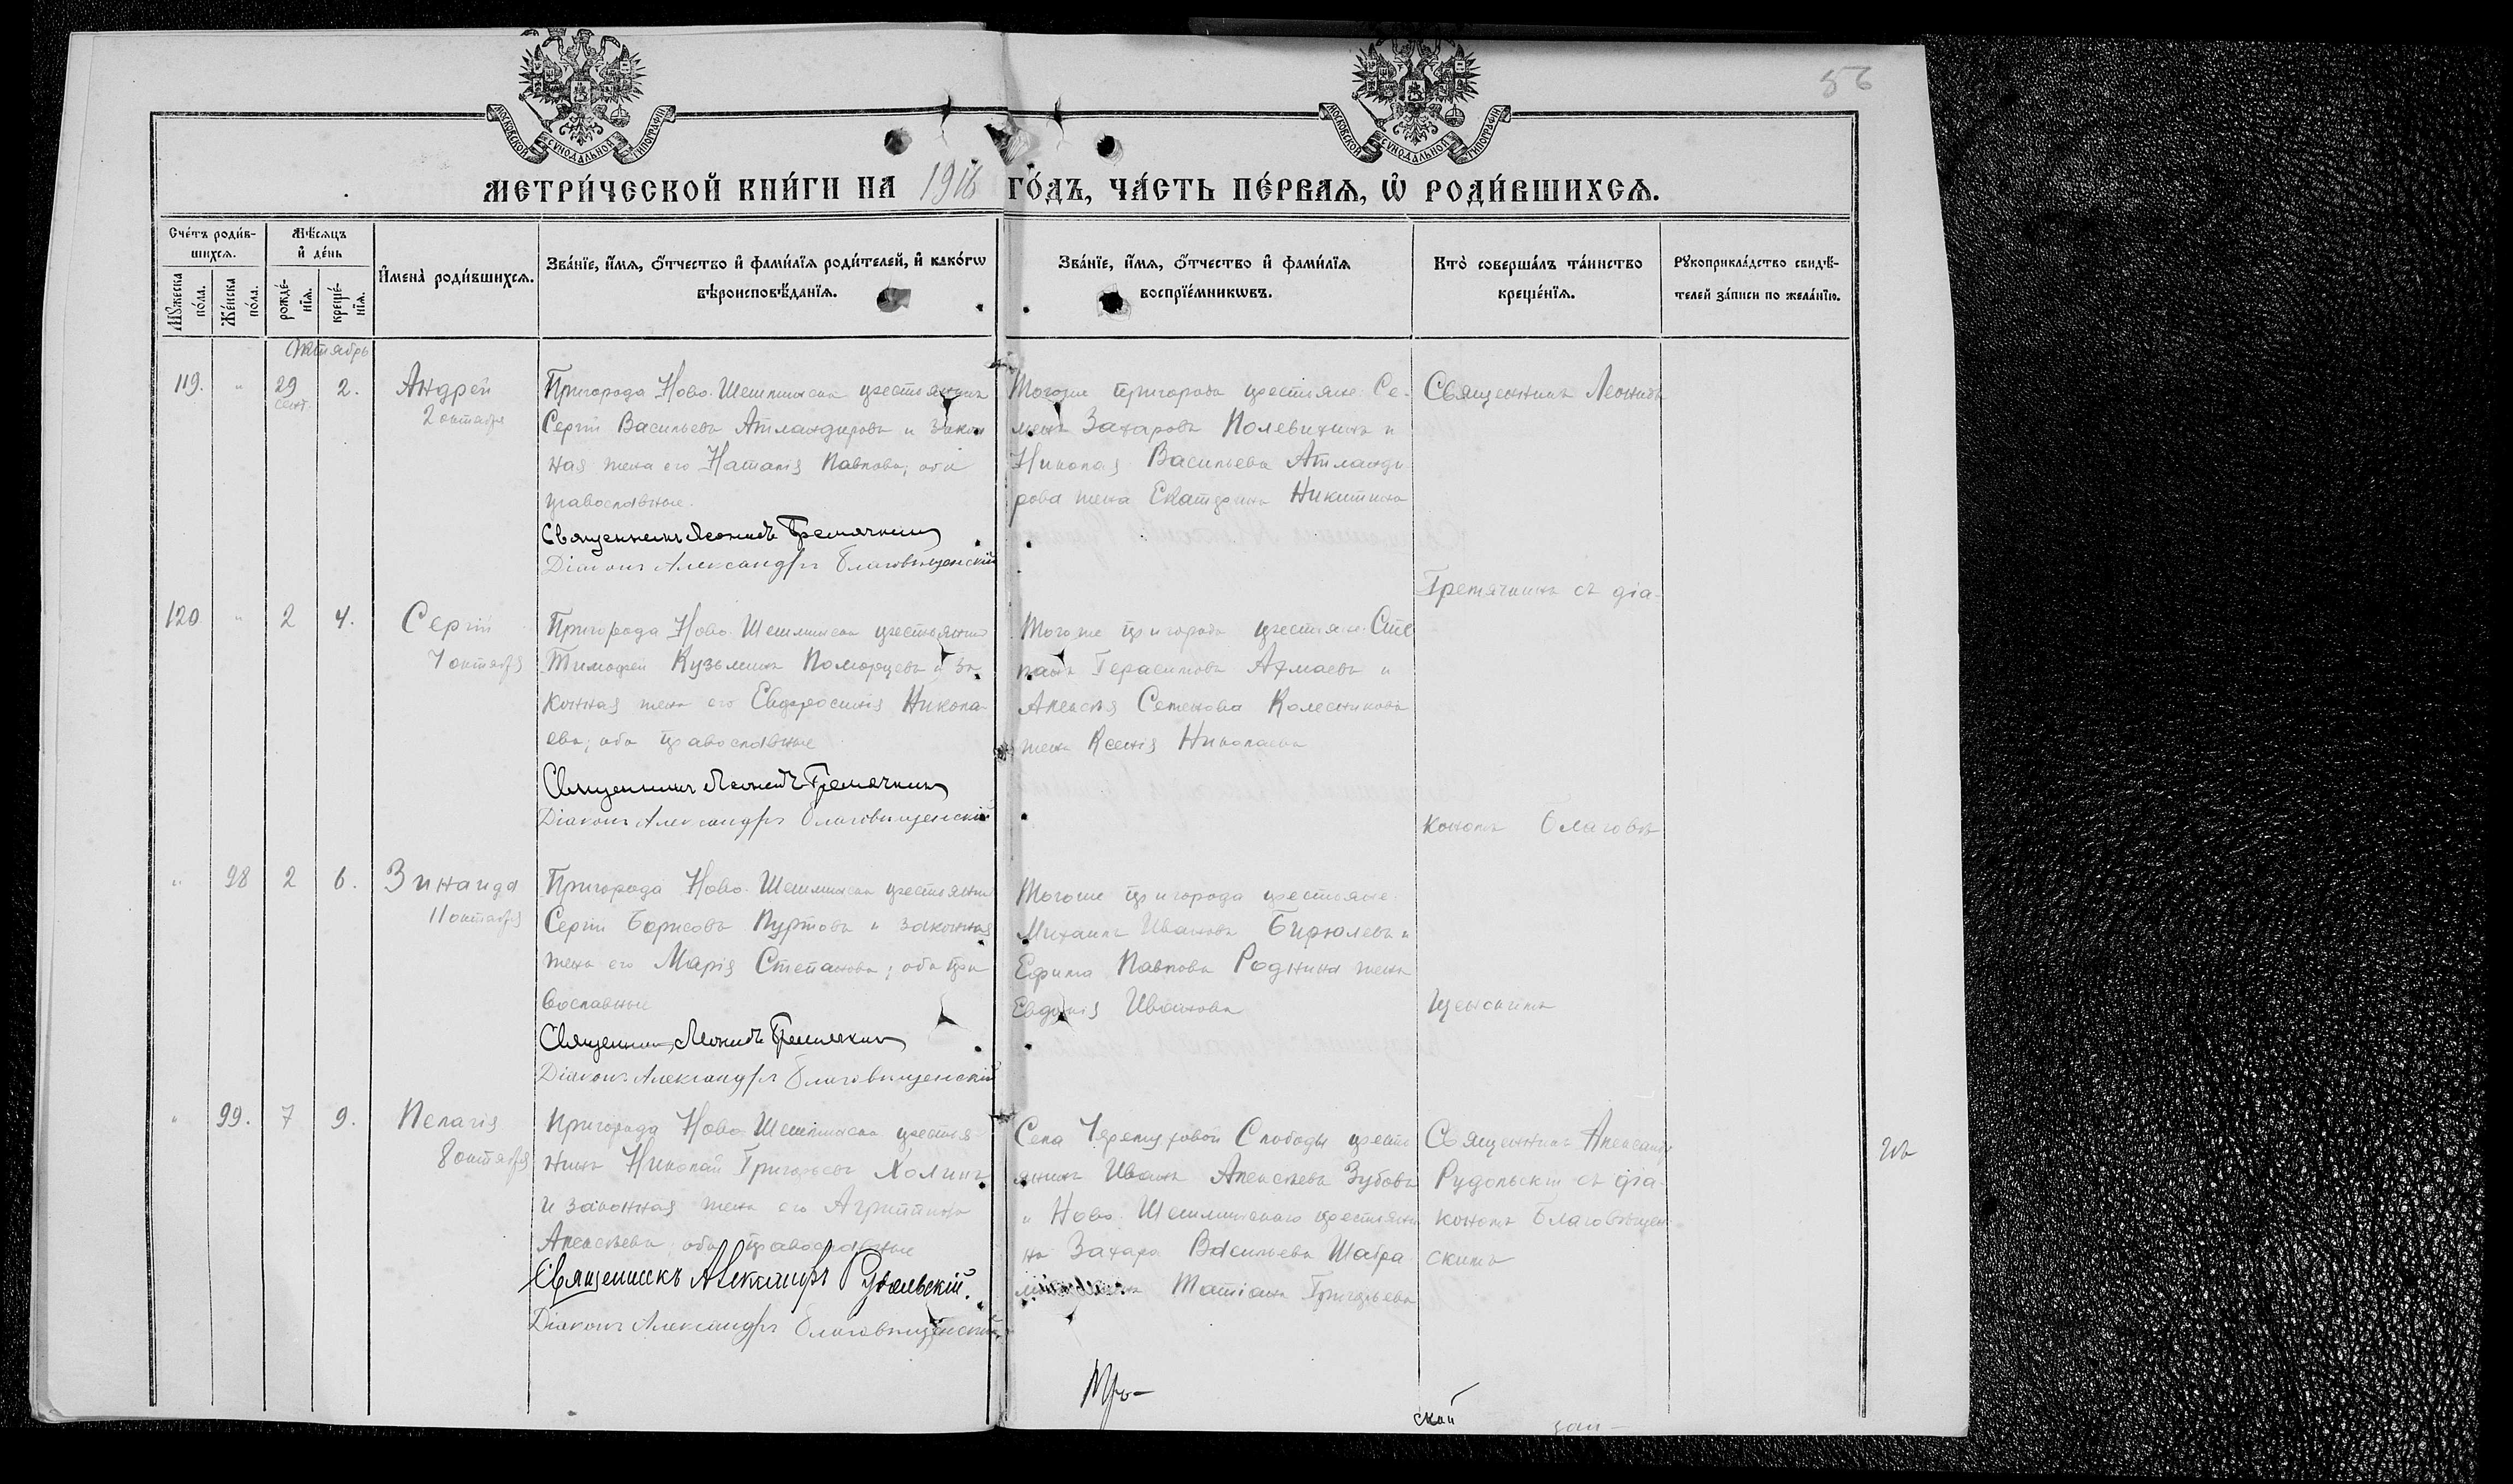 56
МОСКОВСКОЙ СѴНОДАЛЬНОЙ ТИПОГРАФІИ
МОСКОВСКОЙ СѴНОДАЛЬНОЙ ТИПОГРАФІИ
МЕТРИ́ЧЕСКОЙ КНИ́ГИ НА 1916 ГО́ДЪ, ЧА́СТЬ ПЕ́РВАѦ, Ѡ҆ РОДИ́ВШИХСѦ.
Сче́тъ роди́в-
шихсѧ.
Мꙋжеска по́ла.
Же́нска по́ла.
Мѣ́сѧцъ
и҆ де́нь
рожде́-
нїѧ.
креще́-
нїѧ.
И҆мена̀ роди́вшихсѧ.
Зва́нїе, и҆́мѧ, ѻ҆́тчество и҆ фами́лїѧ роди́телей, и҆ како́гѡ
вѣроисповѣ́данїѧ.
Зва́нїе, и҆́мѧ, ѻ҆́тчество и҆ фами́лїѧ
воспрїе́мникѡвъ.
Кто̀ соверша́лъ та́инство
креще́нїѧ.
Рꙋкоприкла́дство свидѣ́-
телей за́писи по жела́нїю.
Октябрь
119. " 29 сент. 2.
Андрей
2 октября
Пригорода Ново-Шешминска крестьянинъ
Сергій Васильевъ Атландировъ и закон
ная жена его Наталія Павлова, оба
православные.
Священникъ Леонидъ Гремячкинъ
Діаконъ Александръ Благовѣщенскій
Тогоже пригорода крестьяне: Се-
менъ Захаровъ Полевихинъ и
Николая Васильева Атланди
рова жена Екатерина Никитина
Священникъ Леонидъ
Гремячкинъ съ діа-
120 " 2 4.
Сергій
7 октября
Пригорода Ново-Шешминска крестьянинъ
Тимофей Кузьминъ Поморцевъ и за
конная жена его Евфросинія Никола
ева, оба православные
Священникъ Леонидъ Гремячкинъ
Діаконъ Александръ Благовѣщенскій
Тогоже пригорода крестьяне: Сте
панъ Герасимовъ Ахмаевъ и
Алексѣя Семенова Колесникова
жена Ксенія Николаева
кономъ Благовѣ
" 98 2 6.
Зинаида
11 октября
Пригорода Ново-Шешминска крестьянинъ
Сергій Борисовъ Пуртовъ и законная
жена его Марія Степанова; оба пра
вославные
Священникъ Леонидъ Гремячкинъ
Діаконъ Александръ Благовѣщенскій
Тогоже пригорода крестьяне:
Михаилъ Ивановъ Бирюлевъ и
Ефима Павлова Роднина жена
Евдокія Иванова
щенскимъ
" 99. 7 9.
Пелагія
8 октября
Пригорода Ново-Шешминска крестья
нинъ Николай Григорьевъ Холинъ
и законная жена его Агриппина
Алексѣева, оба православные
Священникъ Александръ Рудольскій.
Діаконъ Александръ Благовѣщенскій
Села Черемуховой Слободы кресть
янинъ Иванъ Алексѣевъ Зубовъ
и Ново-Шешминскаго крестьяни
на Захара Васильева
жена Татіана Григорьева
Священникъ Александръ
Рудольскій съ діа
кономъ Благовѣщен
скимъ
ской